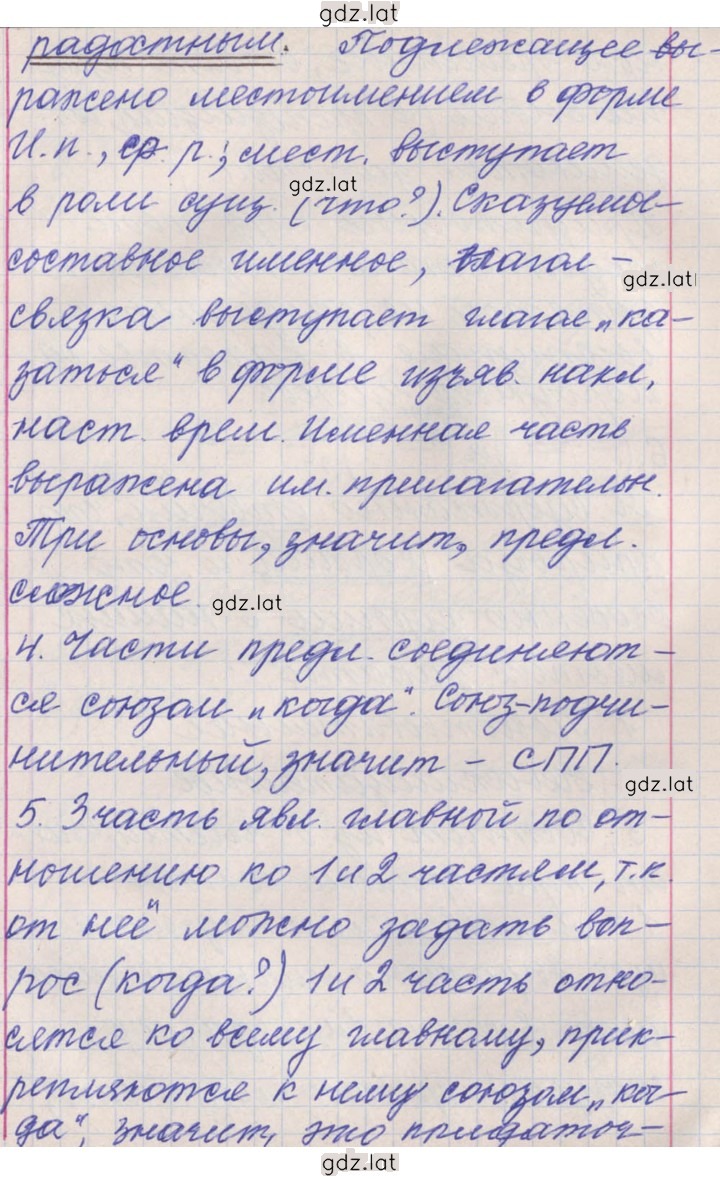 gdz.lat
радостным. Подлежащее вы-
ражено местоимением в форме
И.п., ср. р.; мест. выступает
gdz.lat
в роли сущ. (что?). Сказуемое-
составное именное, глагол -
gdz.lat
связка выступает глагол „ка-
заться" в форме изъяв. накл.,
наст. врем. Именная часть
выражена им. прилагательн.
Три основы, значит, предл.
сложное.
gdz.lat
4. Части предл. соединяют-
ся союзом „когда". Союз-подчи-
нительный, значит - СПП.
gdz.lat
5. 3 часть явл. главной по от-
ношению ко 1 и 2 частям, т.к.
от неё можно задать воп-
рос (когда?) 1 и 2 часть отно-
сятся ко всему главному, прик-
репляются к нему союзом „ког-
да", значит, это придаточ-
gdz.lat